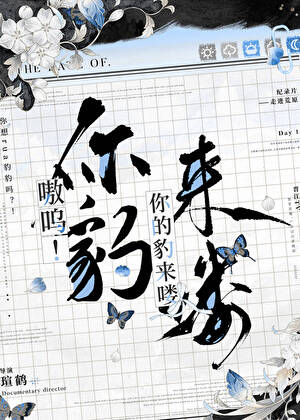 THE DATE OF.
纪录片
走进荒原
Day 1
你想rua豹豹吗?!
你豹来喽
嗷呜!
你的豹来喽
导演
瑄鹤
Documentary director